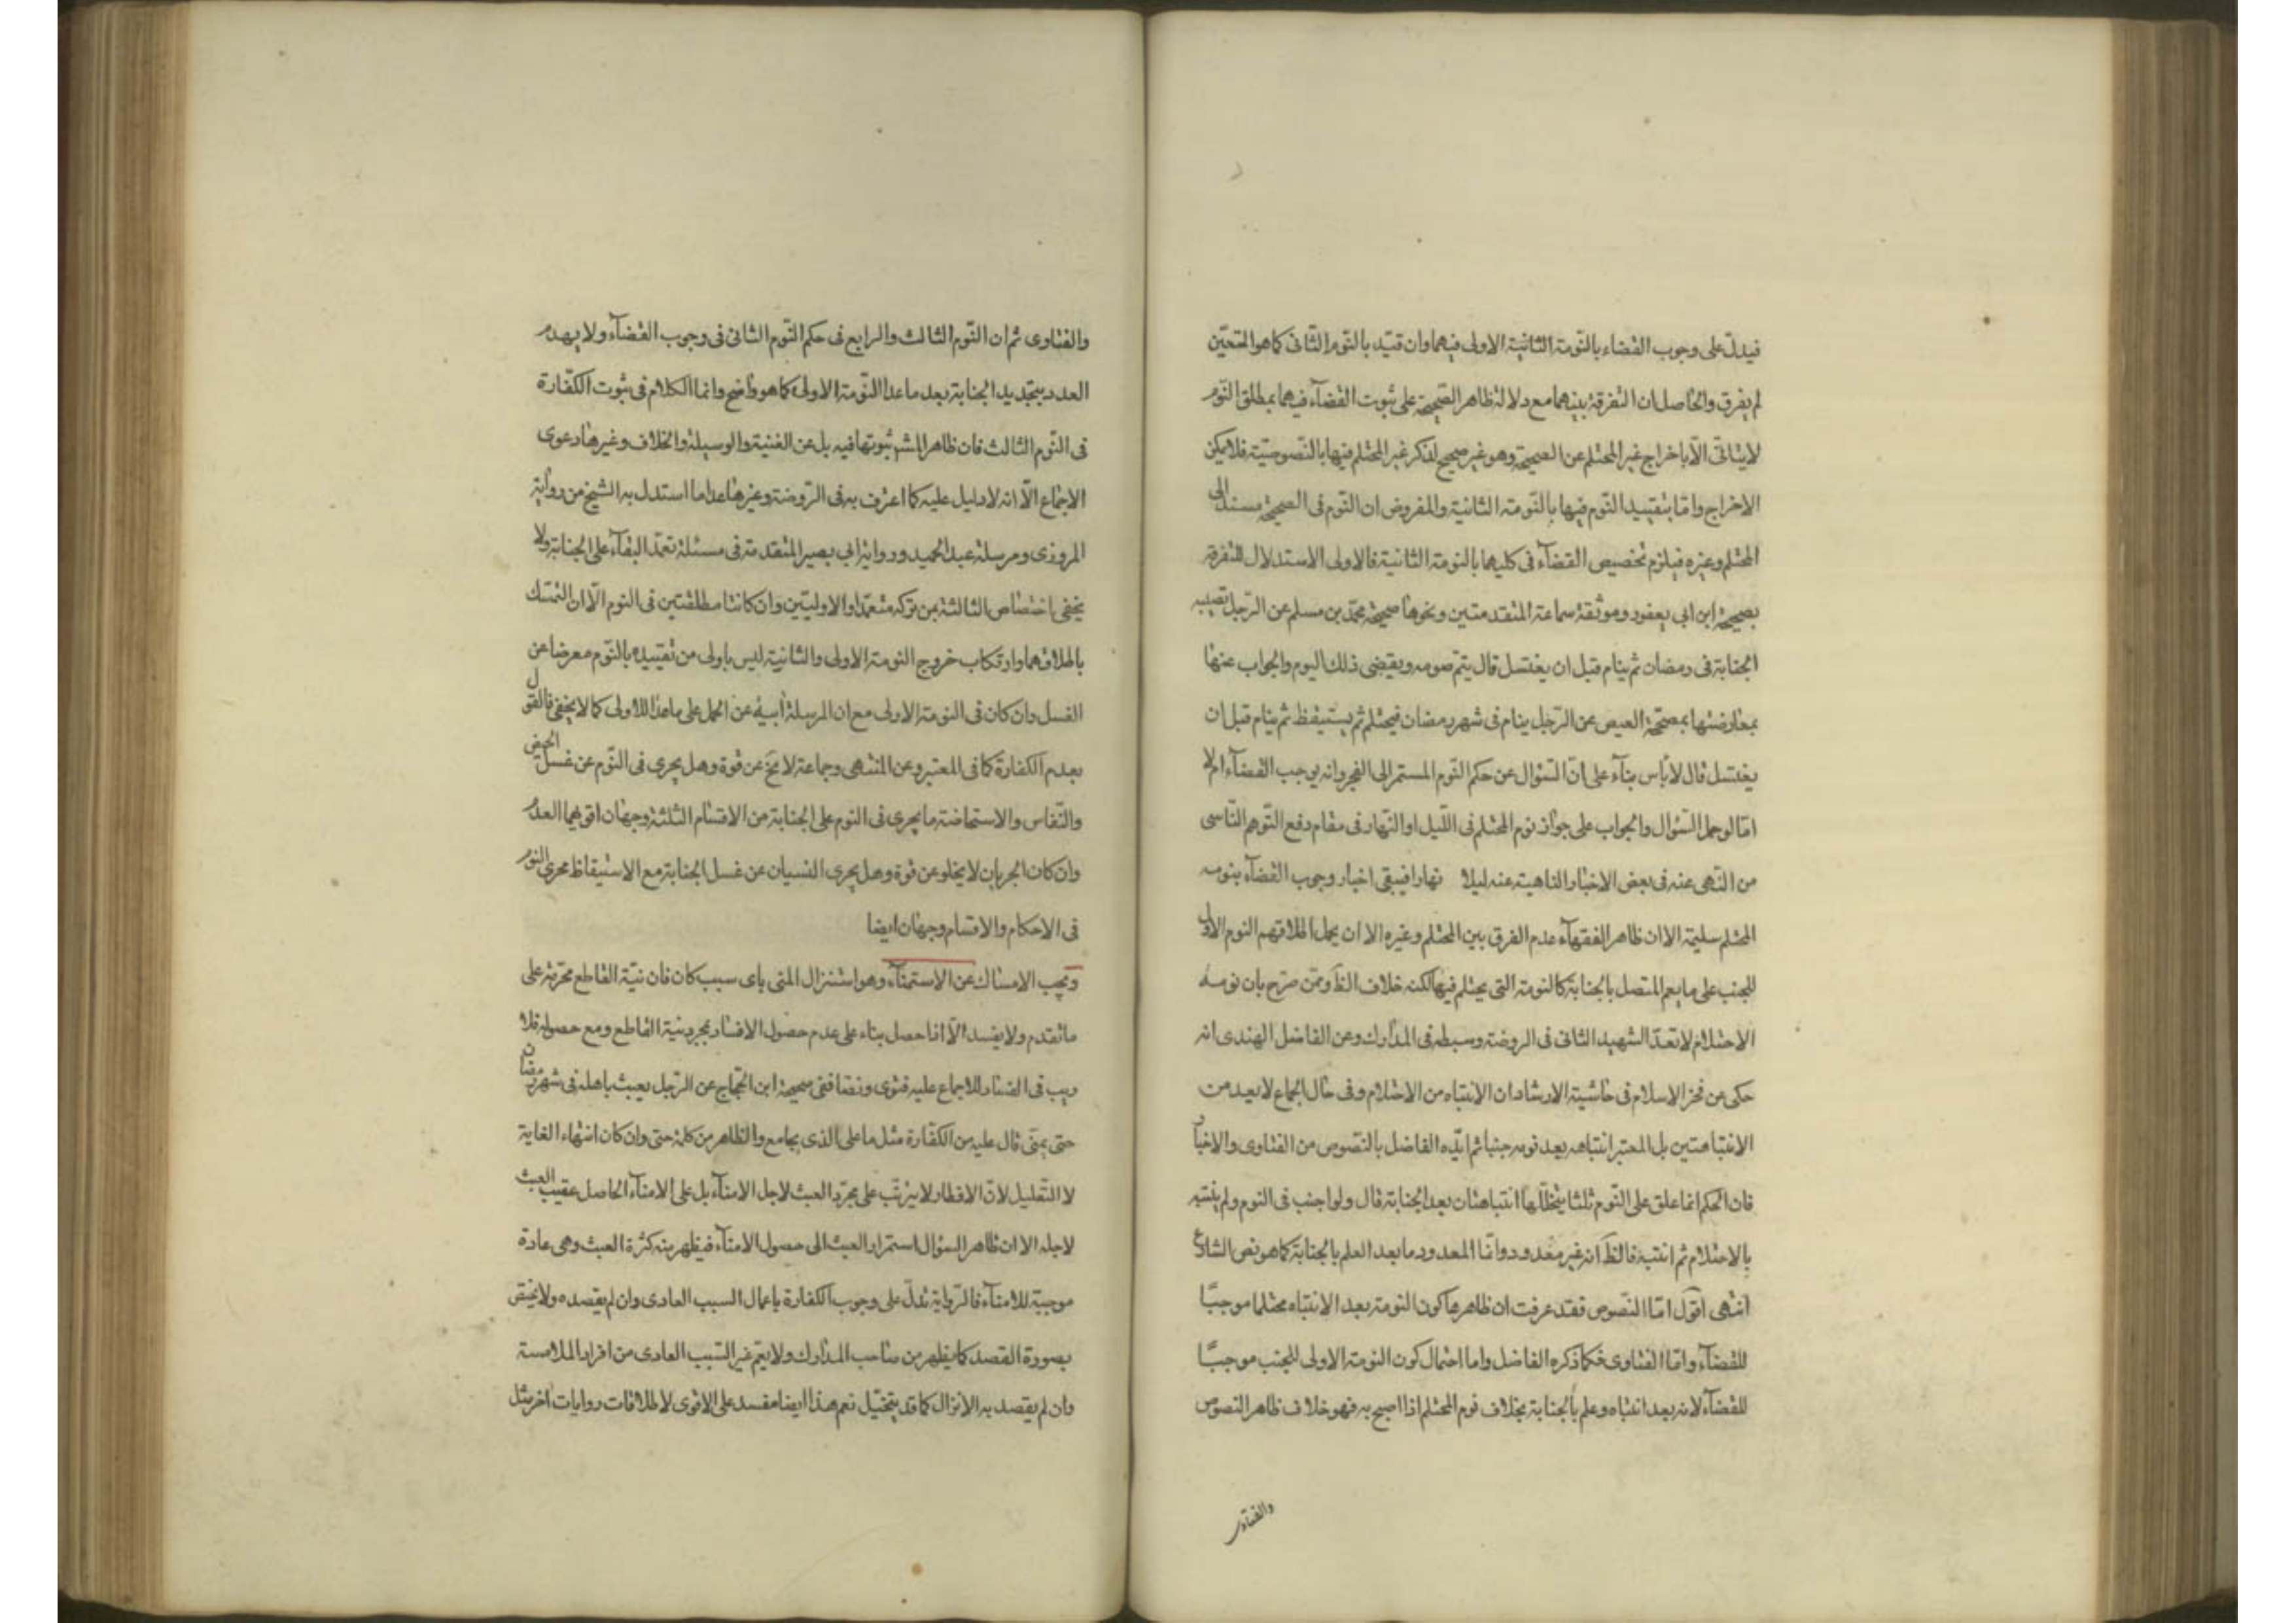 فيدلّ على وجوب القضاء بالنّومة الثانية الاولى فيهما وان قيّد بالنّوم الثانى كما هو المتعيّن
لم يفرق والحاصل ان التفرقة بينهما مع دلالة ظاهر الصّحيحة على ثبوت القضآء فيهما بمطلق النّوم
لايتاتّى الّا باخراج غير المحتلم عن الصحيحة وهو غير صحيح لذكر غير المحتلم فيها بالنّصوصيّة فلا يمكن
الاخراج وامّا بتقييد النّوم فيها بالنّومة الثانية والمفروض ان النّوم فى الصحيحة مسند الى
المحتلم وغيره فيلزم تخصيص القضآء فى كليهما بالنومة الثانية فالاولى الاستدلال للتفرقة
بصحيحة ابن ابى يعفور وموثقة سماعة المتقدمتين ونحوها صحيحة محمّد بن مسلم عن الرّجل تصيبه
الجنابة فى رمضان ثم ينام قبل ان يغتسل قال يتمّ صومه ويقضى ذلك اليوم والجواب عنها
بمعارضتها بمصحّحة العيص عن الرّجل ينام فى شهر رمضان فيحتلم ثم يستيقظ ثم ينام قبل ان
يغتسل قال لا باس بنآء على انّ السّؤال عن حكم النّوم المستمر الى الفجر وانه يوجب القضآء ام لا
امّا لو حمل السّؤال والجواب على جواز نوم المحتلم فى اللّيل او النّهار فى مقام دفع التّوهم النّاسى
من النّهى عنه فى بعض الاخبار الناهية عنه ليلا نهارا فيبقى اخبار وجوب القضآء بنومه
المحتلم سليمة الا ان ظاهر الفقهآء عدم الفرق بين المحتلم وغيره الا ان يحمل اطلاقهم النوم الاول
للجنب على ما يعم المتصل بالجنابة كالنومة التى يحتلم فيها لكنه خلاف الظّ وممّن صرّح بان نومة
الاحتلام لا تعدّ الشهيد الثانى فى الروضة وسبطه فى المدارك وعن الفاضل الهندى انه
حكى عن فخر الاسلام فى حاشية الارشاد ان الانتباه من الاحتلام وفى حال الجماع لا يعد من
الانتباهتين بل المعتبر انتباهه بعد نومه جنبا ثم ايّده الفاضل بالنّصوص من الفتاوى والاخبار
فان الحكم انما علق على النّوم ثلثا يتخلّلها انتباهتان بعد الجنابة قال ولو اجنب فى النوم ولم ينتبه
بالاحتلام ثم انتبه فالظّ انه غير معدود وانّما المعدود ما بعد العلم بالجنابة كما هو نص الشارع
انتهى اقول امّا النّصوص فقد عرفت ان ظاهرها كون النومة بعد الانتباه محتلما موجبًا
للقضآء وامّا الفتاوى فكما ذكره الفاضل واما احتمال كون النومة الاولى للجنب موجبًا
للقضآء لانه بعد انتباه وعلم بالجنابة بخلاف نوم المحتلم اذا اصبح به فهو خلاف ظاهر النصوص
والفتاوى
والفتاوى ثم ان النّوم الثالث والرابع فى حكم النّوم الثانى فى وجوب القضآء ولا يهدم
العدد بتجديد الجنابة بعد ما عدا النّومة الاولى كما هو واضح وانما الكلام فى ثبوت الكفّارة
فى النّوم الثالث فان ظاهر المشهور ثبوتها فيه بل عن الغنية والوسيلة والخلاف وغيرها دعوى
الاجماع الّا انه لا دليل عليه كما اعترف به فى الرّوضة وغيرها عدا ما استدل به الشيخ من رواية
المروزى ومرسلة عبد الحميد ورواية ابى بصير المتقدمة فى مسئلة تعمّد البقآء على الجنابة ولا
يخفى اختصاص الثالثة بمن تركه متعمّدا والاوليين وان كانتا مطلقتين فى النوم الّا ان التمسّك
باطلاقهما وارتكاب خروج النومة الاولى والثانية ليس باولى من تقييده بالنّوم معرضا عن
الغسل وان كان فى النومة الاولى مع ان المرسلة أبيّة عن الحمل على ما عدا الاولى كما لا يخفى فالقول
بعدم الكفارة كما فى المعتبر وعن المنتهى وجماعة لا يخ عن قوة وهل يجرى فى النّوم عن غسل الحيض
والنّفاس والاستحاضة ما يجرى فى النوم على الجنابة من الاقسام الثلثة وجهان اقويهما العدم
وان كان الجريان لا يخلو عن قوة وهل يجرى النسيان عن غسل الجنابة مع الاستيقاظ مجرى النوم
فى الاحكام والاقسام وجهان ايضا
ويجب الامساك عن الاستمنآء وهو استنزال المنى باى سبب كان فان نيّة القاطع محرّمة على
ما تقدم ولا يفسد الّا اذا حصل بناء على عدم حصول الافساد بمجرد نية القاطع ومع حصوله فلا
ريب فى الفساد للاجماع عليه فتوى ونصّا ففى صحيحة ابن الحجّاج عن الرّجل يعبث باهله فى شهر رمضان
حتى يمنى قال عليه من الكفّارة مثل ما على الذى يجامع والظاهر من كلمة حتى وان كان انتهاء الغاية
لا التّعليل لانّ الافطار لا يترتّب على مجرّد العبث لاجل الامنآء بل على الامنآء الحاصل عقيب العبث
لاجله الا ان ظاهر السؤال استمرار العبث الى حصول الامنآء فيظهر منه كثرة العبث وهى عادة
موجبة للامنآء فالرّواية تدلّ على وجوب الكفارة باعمال السبب العادى وان لم يقصده ولا يختص
بصورة القصد كما يظهر من صاحب المدارك ولا يعم غير السّبب العادى من افراد الملامسة
وان لم يقصد به الانزال كما قد يتخيّل نعم هذا ايضا مفسد على الاقوى لاطلاقات روايات اخر مثل